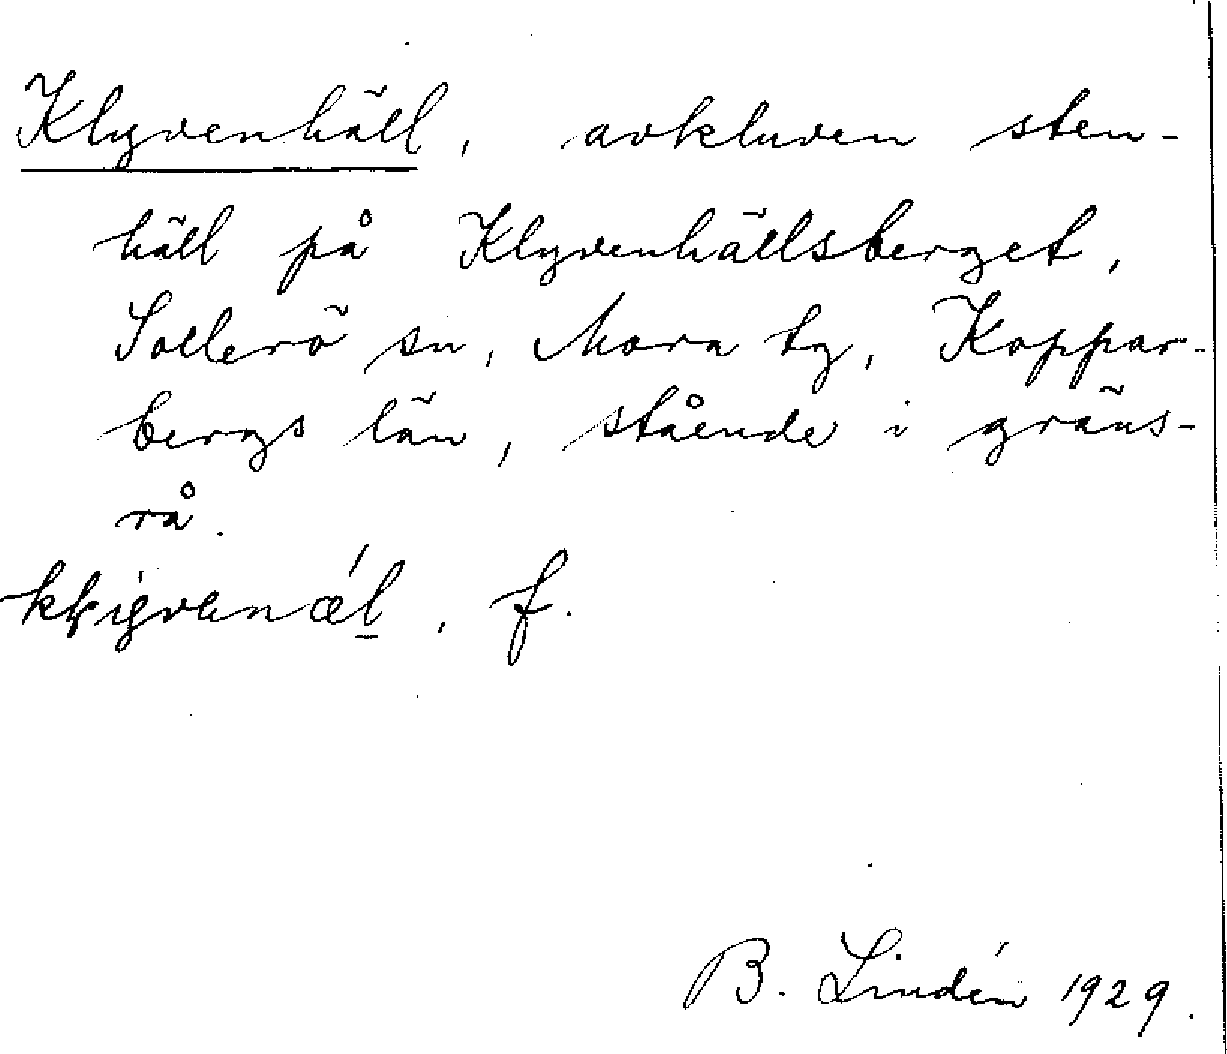 Klyvenhäll, avkluven sten-
häll på Klyvenhällsberget,
Sollerö sn, Mora tg, Koppar-
bergs län, stående i gräns-
rå.
f.
B. Lindén 1929.